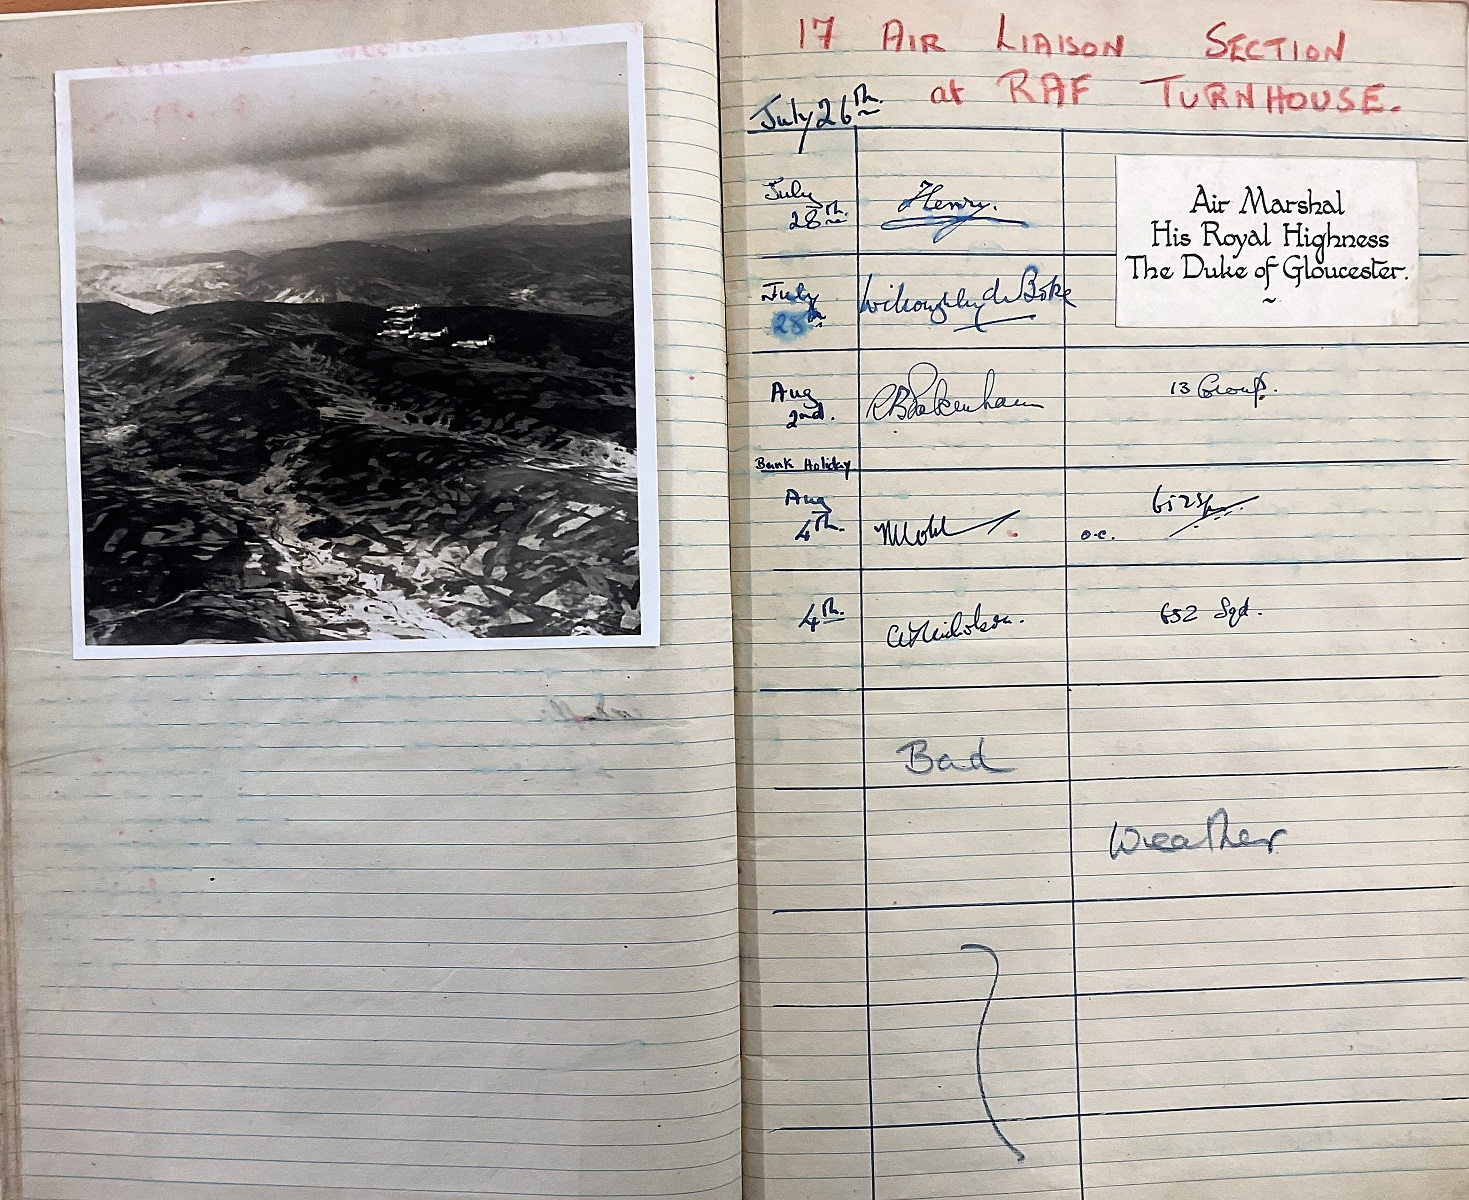 17 AIR LIAISON SECTION
at RAF TURNHOUSE.
July 26th.
July 28th. Henry.
Air Marshal
His Royal Highness
The Duke of Gloucester.
~
July 28th Willoughby de Broke
Aug 2nd. R B Pakenham 13 Group.
Bank Holiday
Aug 4th. o.c.
4th. Nicholson. 652 Sqd.
Bad
Weather